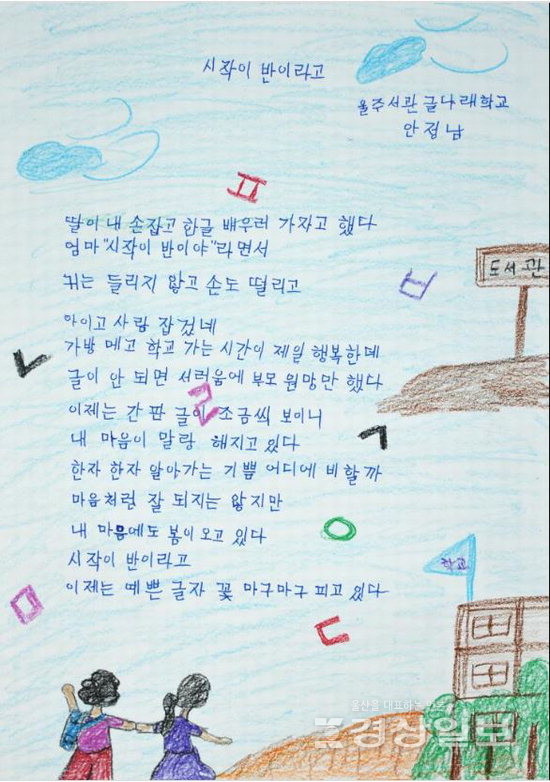 시작이 반이라고
울주서관 글나래학교
안점남
딸이 내 손잡고 한글 배우러 가자고 했다
엄마 "시작이 반이야"라면서
귀는 들리지 않고 손도 떨리고
아이고 사람 잡겄네
가방 메고 학교 가는 시간이 제일 행복한데
글이 안 되면 서러움에 부모 원망만 했다
이제는 간판 글이 조금씩 보이니
내 마음이 말랑 해지고 있다
한자 한자 알아가는 기쁨 어디에 비할까
마음처럼 잘 되지는 않지만
내 마음에도 봄이 오고 있다
시작이 반이라고
이제는 예쁜 글자 꽃 마구마구 피고 있다
도서관
학교
ㅍ
ㅂ
ㄴ
ㄹ
ㄱ
ㅇ
ㅁ
ㄷ
경상일보